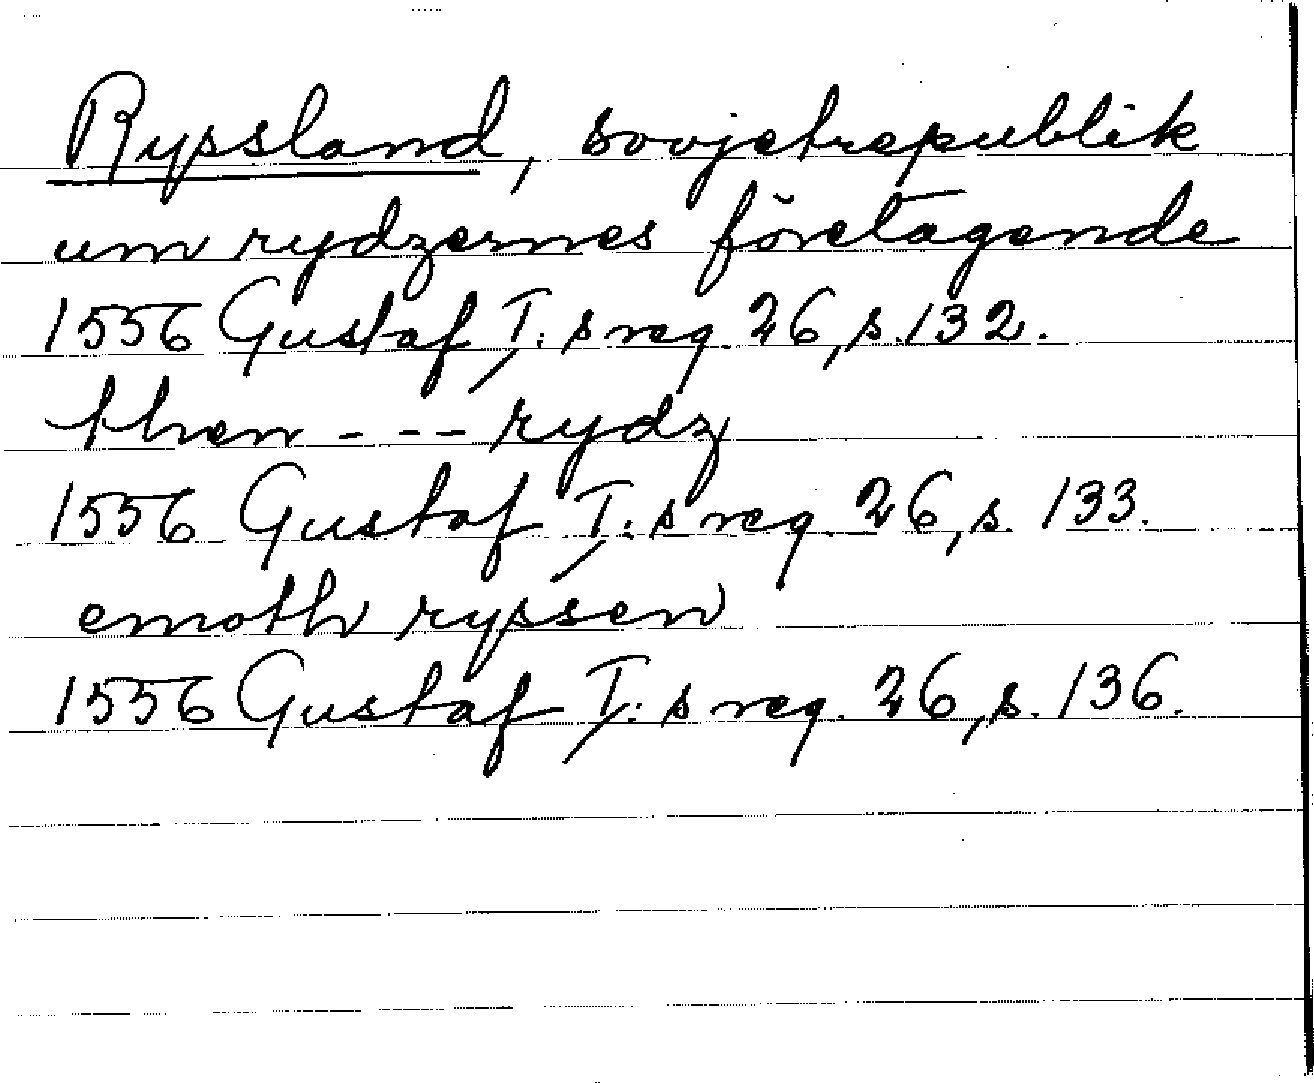 Ryssland, sovjetrepublik
um rydzernes företagende
1556 Gustaf I:s reg. 26, s. 132.
then - - - rydz
1556 Gustaf I:s reg. 26, s. 133.
emoth ryssen
1556 Gustaf I:s reg. 26, s. 136.